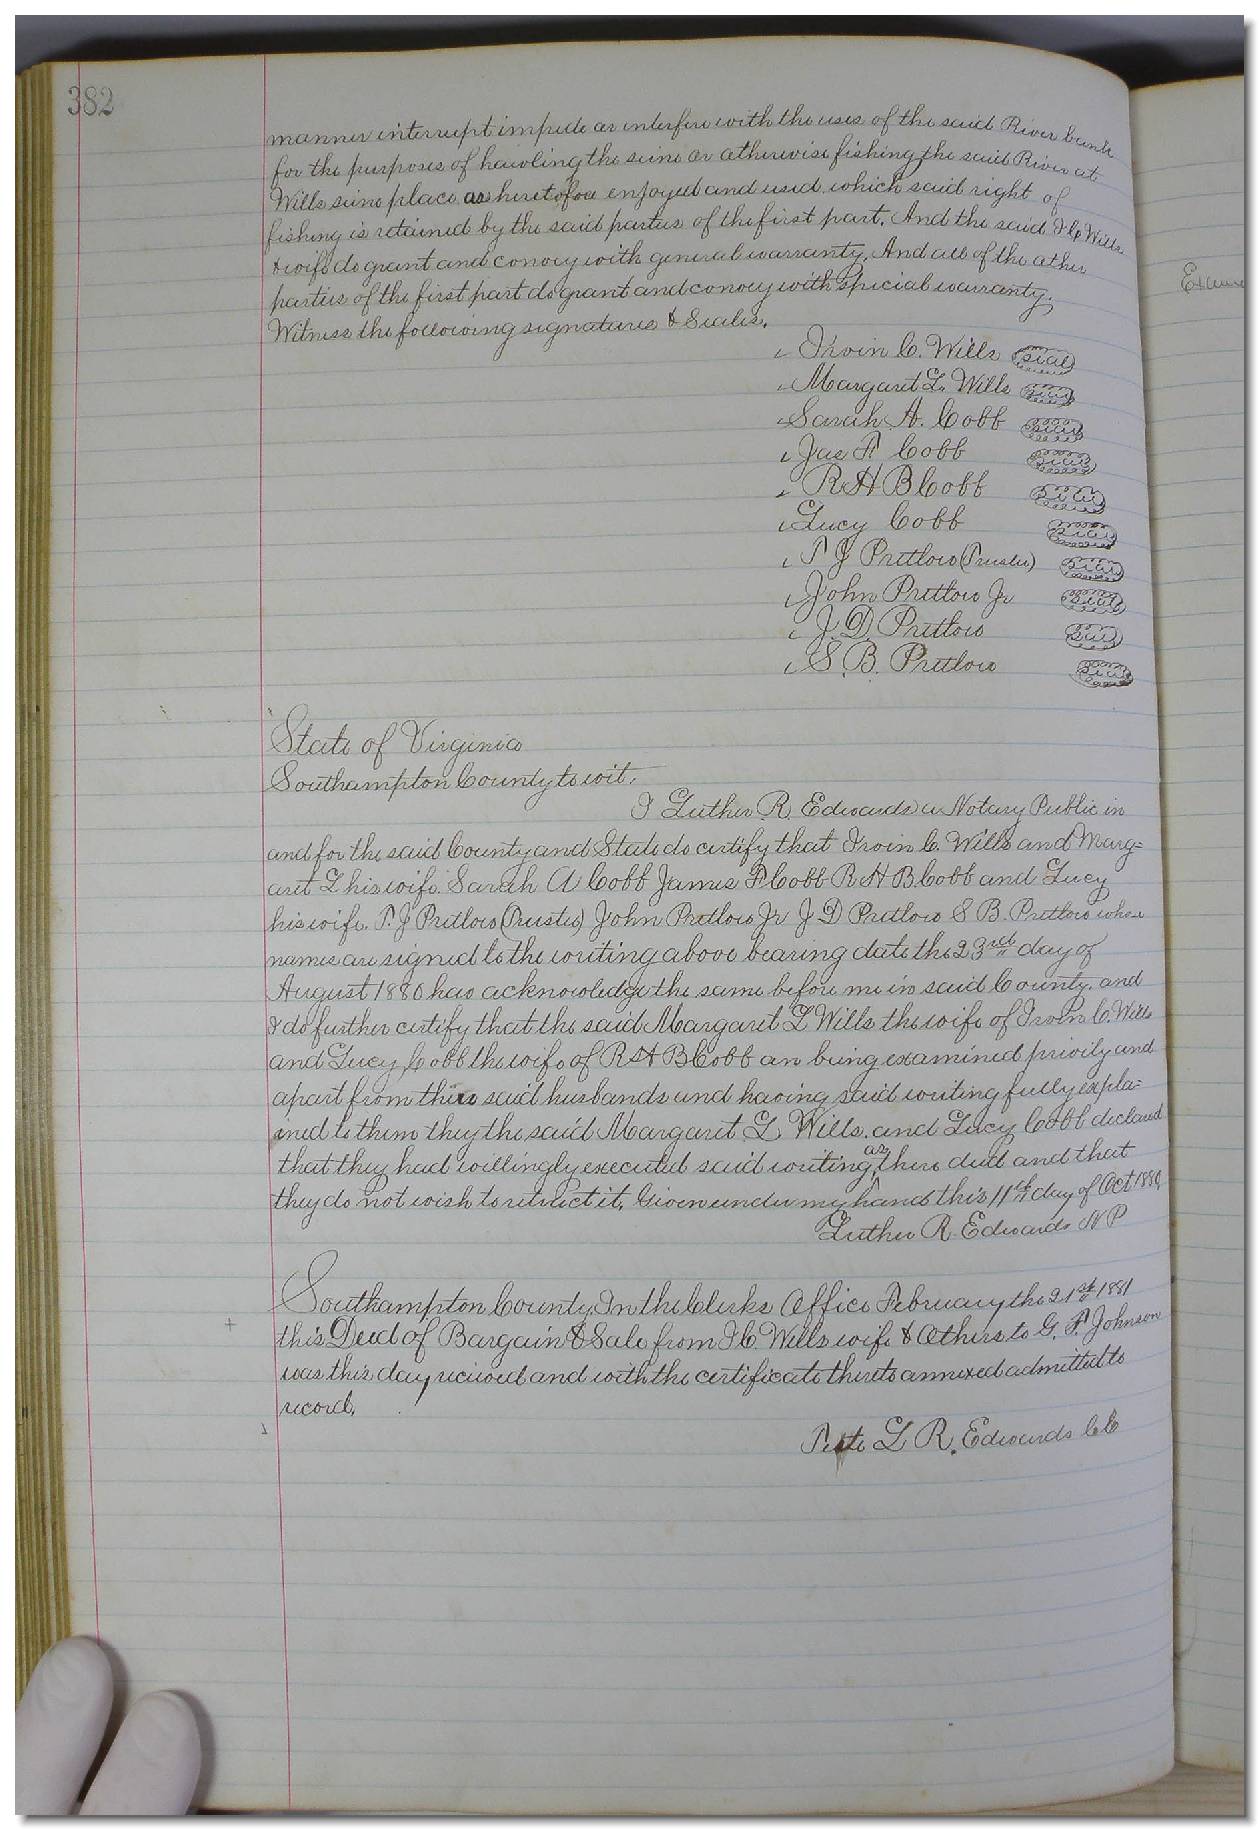 382
manner interrupt impede or interfere with the uses of the said River bank
for the purposes of hawling the seine or otherwise fishing the said River at
Wills seine place as heretofore enjoyed and used, which said right of
fishing is retained by the said parties of the first part. And the said I C Wills
& wife do grant and convey with general warranty. And all of the other
parties of the first part do grant and convey with special warranty.
Witness the following signatures & Seals.
Irvin C. Wills seal
Margaret L. Wills seal
Sarah A. Cobb seal
Jas F Cobb seal
R H B Cobb seal
Lucy Cobb seal
P J Pretlow (Trustee) seal
John Pretlow Jr seal
J. D. Pretlow seal
S. B. Pretlow seal
State of Virginia
Southampton County to wit.
I Luther R. Edwards a Notary Public in
and for the said County and State do certify that Irvin C. Wills and Marg=
aret L his wife. Sarah A Cobb James F Cobb R H B Cobb and Lucy
his wife. P. J Pretlow (Trustee) John Pretlow Jr J D Pretlow S B. Pretlow whose
names are signed to the writing above bearing date the 23rd day of
August 1880 has acknowledge the same before me in said County. and
I do further certify that the said Margaret L Wills the wife of Irvin C. Wills
and Lucy Cobb the wife of R H B Cobb an being examined privily and
apart from their said husbands and having said writing fully expla=
ined to them they the said Margaret L Wills. and Lucy Cobb declared
that they had willingly executed said writing as there deed and that
they do not wish to retract it. Given under my hand this 11th day of Oct 1880
Luther R. Edwards N P
Southampton County. In the Clerks Office February the 21st 1881
this Deed of Bargain & Sale from I. C. Wills wife & Others to G. P. Johnson
was this day received and with the certificate thereto annexed admitted to
record.
Teste L R. Edwards C C